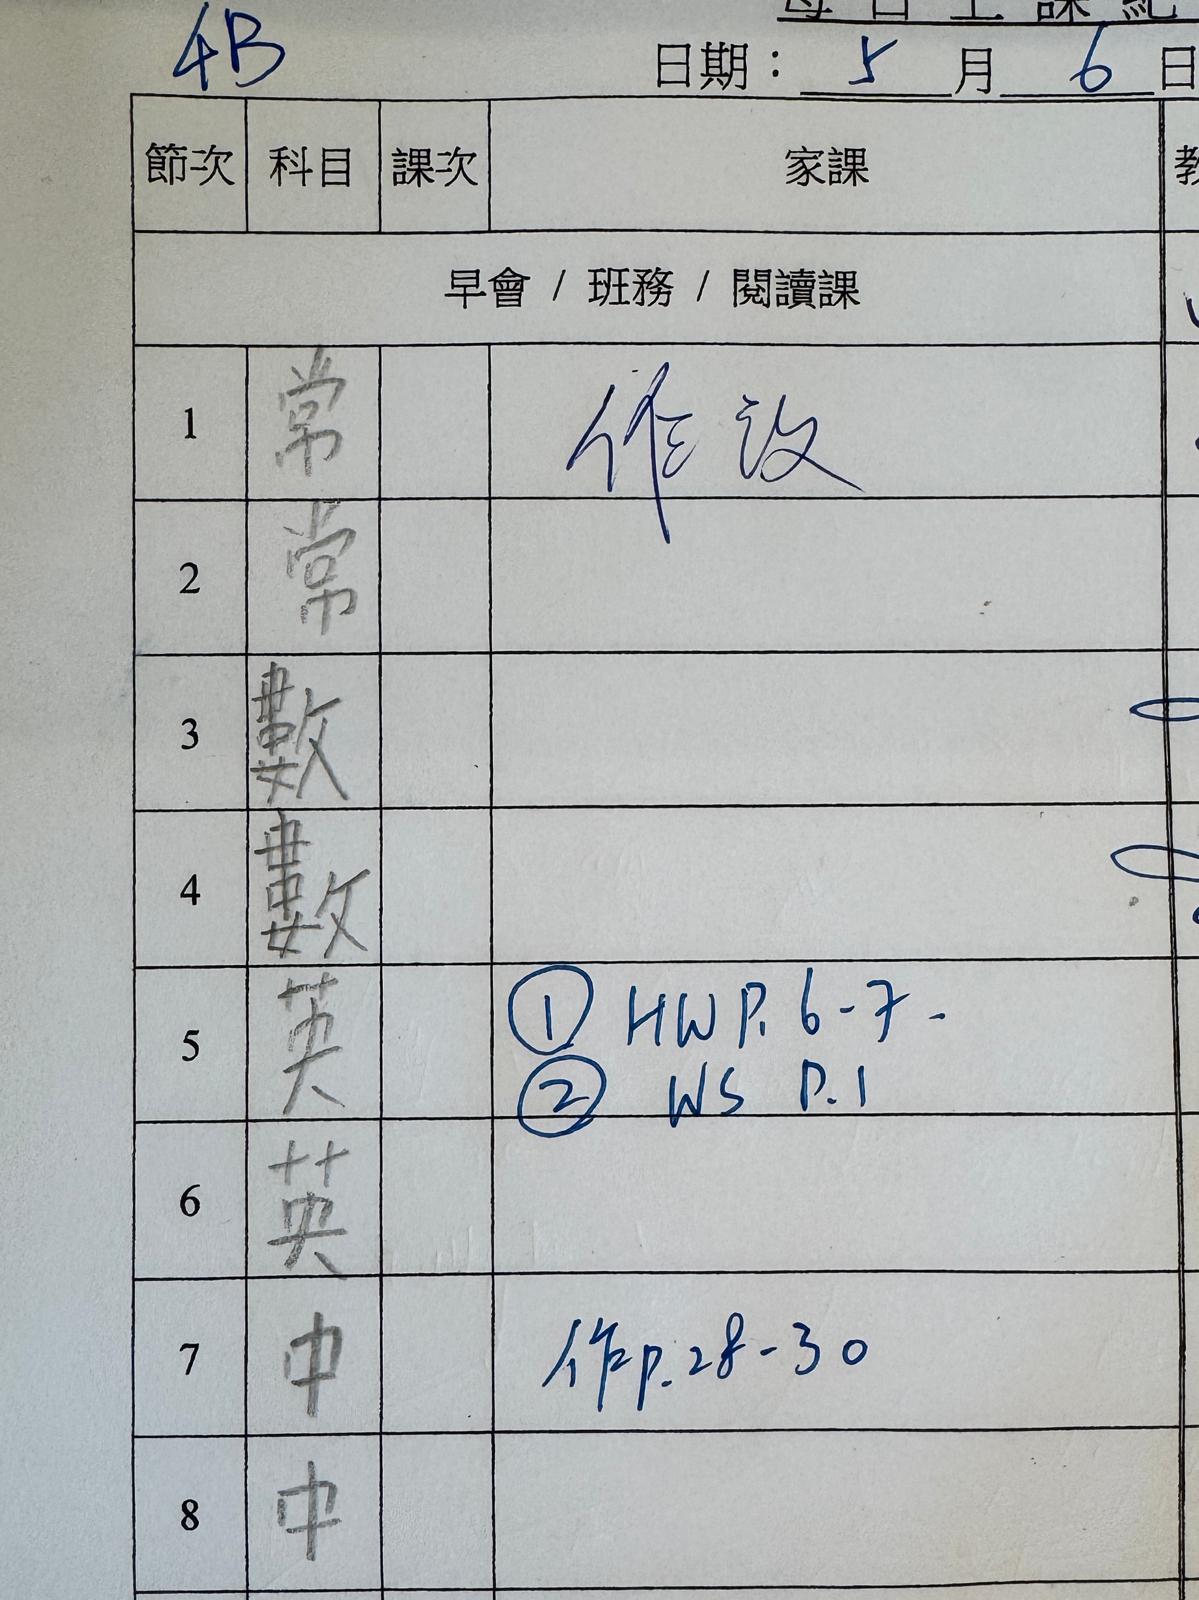 4B
日期：5月6日
節次 科目 課次 家課
早會 / 班務 / 閱讀課
1 常 作改
2 常
3 數
4 數
5 英 ① HW P. 6-7.
② WS P.1
6 英
7 中 作p.28-30
8 中